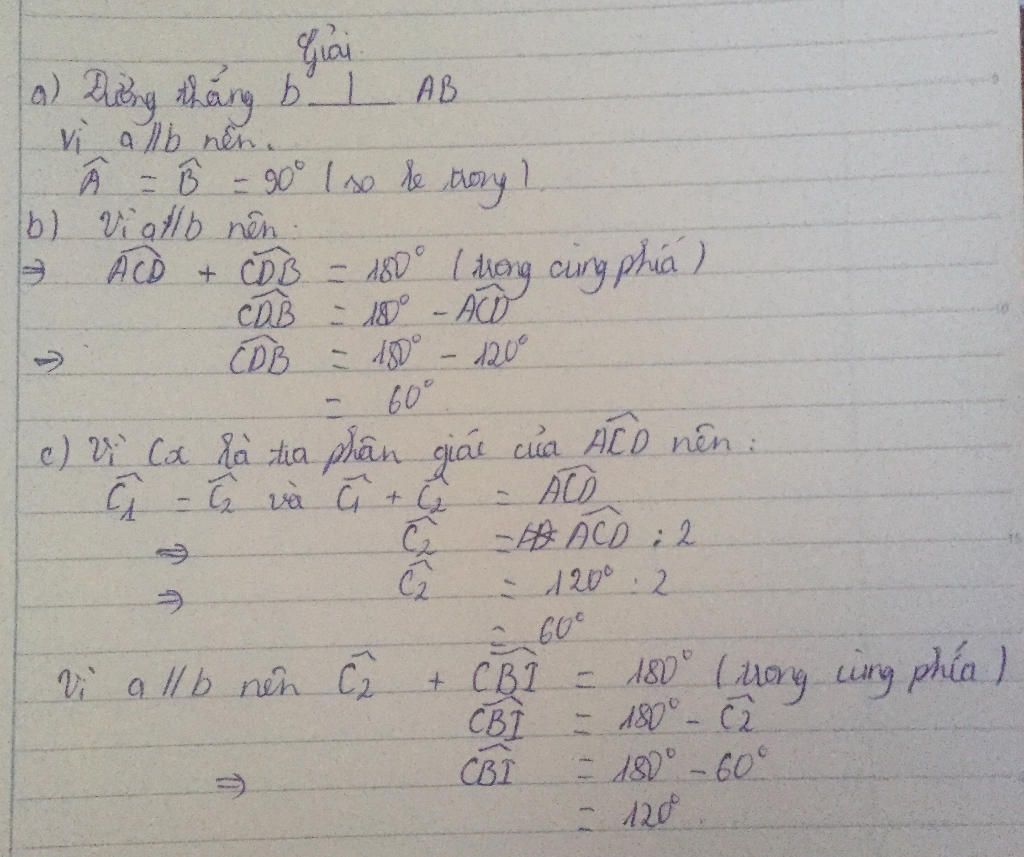 Giải
a) Đường thẳng b ⊥ AB
Vì a // b nên.
Â = B̂ = 90° (so le trong)
b) Vì a // b nên:
⇒ ACD̂ + CDB̂ = 180° (trong cùng phía)
CDB̂ = 180° - ACD̂
⇒ CDB̂ = 180° - 120°
= 60°
c) Vì Cx là tia phân giác của ACD̂ nên:
Ĉ1 = Ĉ2 và Ĉ1 + Ĉ2 = ACD̂
⇒ Ĉ2 = ACD̂ : 2
⇒ Ĉ2 = 120° : 2
= 60°
Vì a // b nên Ĉ2 + CBÎ = 180° (trong cùng phía)
CBÎ = 180° - Ĉ2
⇒ CBÎ = 180° - 60°
= 120°